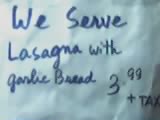 We Serve
Lasagna with
garlic Bread 3.99
+ TAX